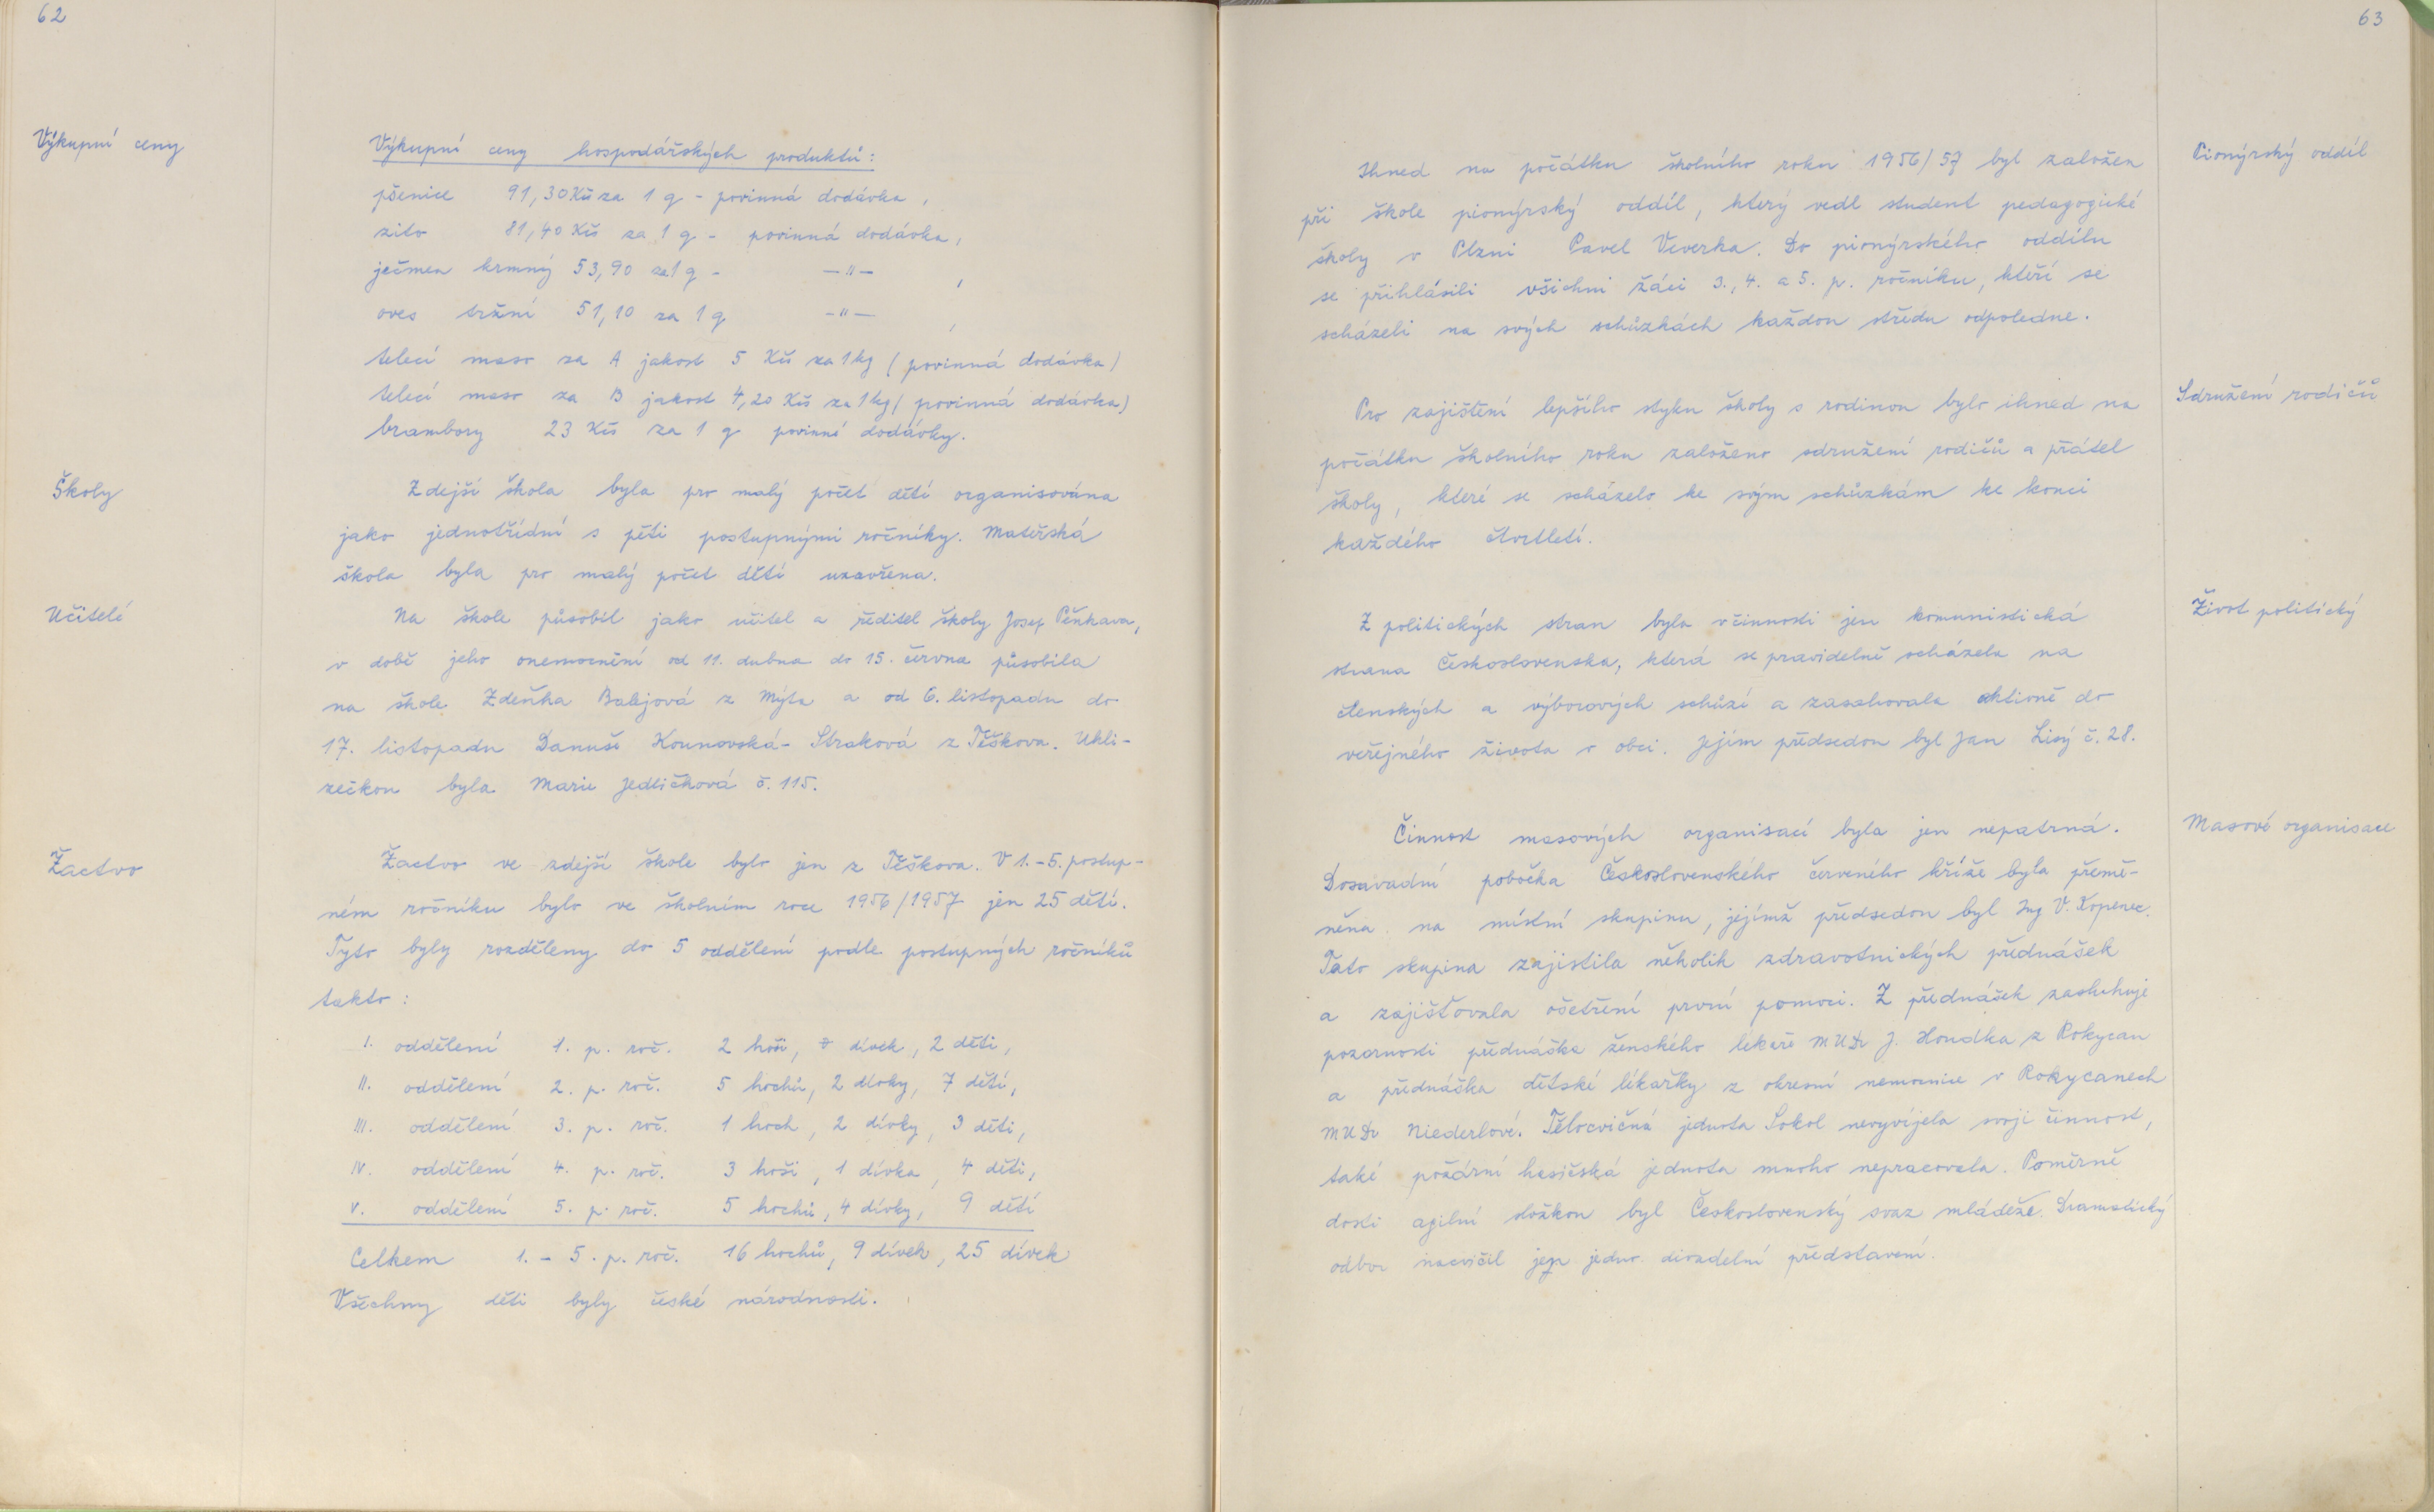 62
Výkupní ceny
Výkupní ceny hospodářských produktů:
pšenice 91,30 Kčs za 1 q - povinná dodávka,
žito 81,40 Kčs za 1 q - povinná dodávka,
ječmen krmný 53,90 za 1 q - -"- ,
oves tržní 51,10 za 1 q -"- ,
telecí maso za A jakost 5 Kčs za 1 kg (povinná dodávka)
telecí maso za B jakost 4,20 Kčs za 1 kg (povinná dodávka)
brambory 23 Kčs za 1 q povinné dodávky.
Školy
Zdejší škola byla pro malý počet dětí organisována
jako jednotřídní s pěti postupnými ročníky. Mateřská
škola byla pro malý počet dětí uzavřena.
Učitelé
Na škole působil jako učitel a ředitel školy Josef Pěnkava,
v době jeho onemocnění od 11. dubna do 15. června působila
na škole Zdeňka Balejová z Mýta a od 6. listopadu do
17. listopadu Danuše Kounovská-Straková z Těškova. Ukli-
zečkou byla Marie Jedličková č. 115.
Žactvo
Žactvo ve zdejší škole bylo jen z Těškova. V 1.-5. postup-
ném ročníku bylo ve školním roce 1956/1957 jen 25 dětí.
Tyto byly rozděleny do 5 oddělení podle postupných ročníků
takto:
I. oddělení 1. p. roč. 2 hoši, dívek, 2 děti,
II. oddělení 2. p. roč. 5 hochů, 2 dívky, 7 dětí,
III. oddělení 3. p. roč. 1 hoch, 2 dívky, 3 děti,
IV. oddělení 4. p. roč. 3 hoši, 1 dívka, 4 děti,
V. oddělení 5. p. roč. 5 hochů, 4 dívky, 9 dětí
Celkem 1. - 5. p. roč. 16 hochů, 9 dívek, 25 dívek
Všechny děti byly české národnosti.
63
Pionýrský oddíl
Ihned na počátku školního roku 1956/57 byl založen
při škole pionýrský oddíl, který vedl student pedagogické
školy v Plzni Pavel Veverka. Do pionýrského oddílu
se přihlásili všichni žáci 3., 4. a 5. p. ročníku, kteří se
scházeli na svých schůzkách každou středu odpoledne.
Sdružení rodičů
Pro zajištění lepšího styku školy s rodinou bylo ihned na
počátku školního roku založeno sdružení rodičů a přátel
školy, které se scházelo ke svým schůzkám ke konci
každého čtvrtletí.
Život politický
Z politických stran byla v činnosti jen komunistická
strana Československa, která se pravidelně scházela na
členských a výborových schůzí a zasahovala aktivně do
veřejného života v obci. Jejím předsedou byl Jan Lisý č. 28.
Masové organisace
Činnost masových organisací byla jen nepatrná.
Dosavadní pobočka Československého červeného kříže byla přemě-
něna na místní skupinu, jejímž předsedou byl Ing V. Kopenec.
Tato skupina zajistila několik zdravotnických přednášek
a zajišťovala ošetření první pomoci. Z přednášek zasluhuje
pozornosti přednáška ženského lékaře MUDr J. Houdka z Rokycan
a přednáška dětské lékařky z okresní nemocnice v Rokycanech
MUDr Niederlové. Tělocvičná jednota Sokol nevyvíjela svoji činnost,
také požární hasičská jednota mnoho nepracovala. Poměrně
dosti agilní složkou byl Československý svaz mládeže. Dramatický
odbor nacvičil jen jedno divadelní představení.